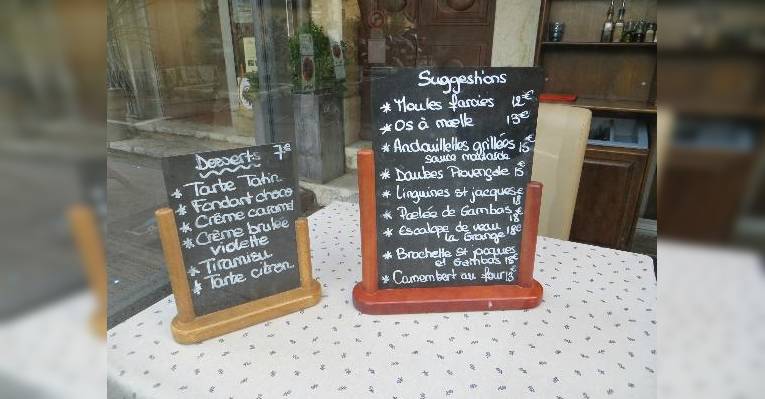 Desserts 7€
* Tarte Tatin
* Fondant choco
* Crême caramel
* Crême brulée
violette
* Tiramisu
* Tarte citron
Suggestions
* Moules farcies 12€
* Os à moelle 13€
* Andouillettes grillées 15€
sauce moutarde
* Daubes Provençale 15€
* Linguines st jacques 18€
* Poelée de Gambas 18€
* Escalope de veau
la Grange 18€
* Brochette st jacques
et Gambas 18€
* Camembert au four 13€